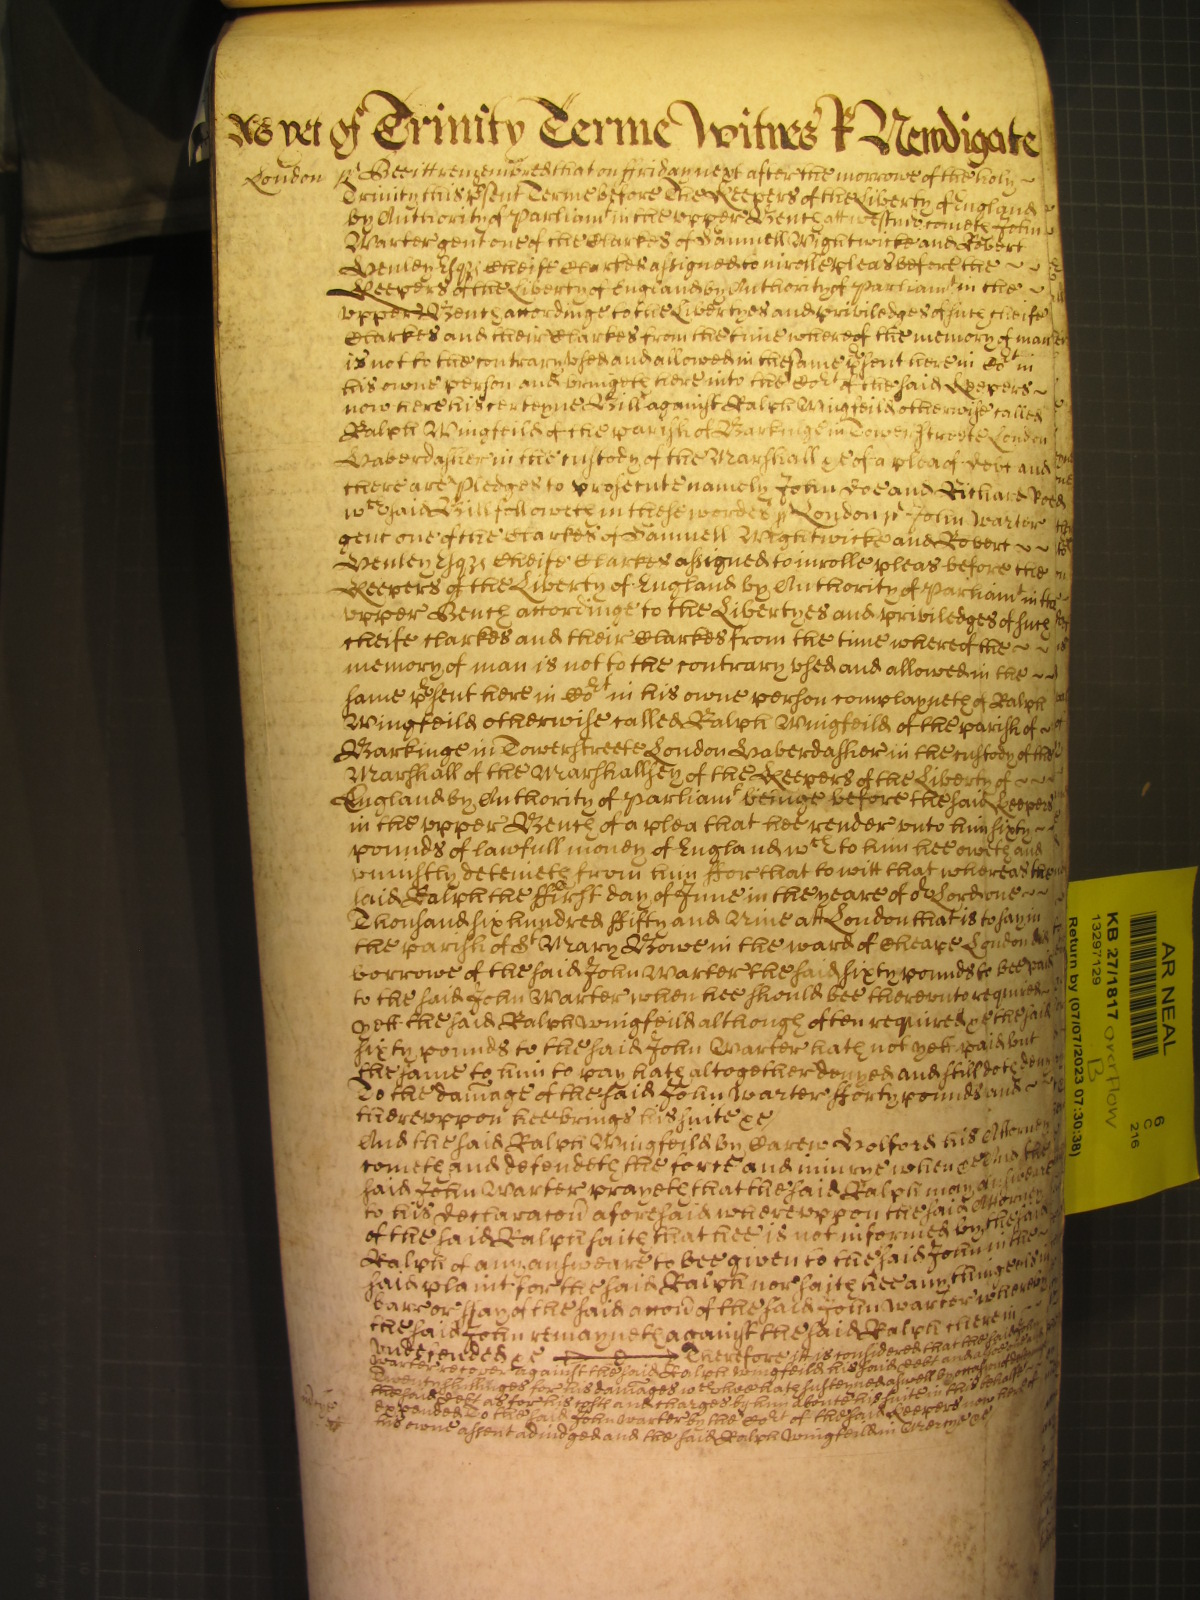 As yet of Trinity Terme Witnes R Newdigate
London ss Bee itt remembred that on ffriday next after the morrowe of the holy
Trinity this psent Terme before The Keepers of the Liberty of England
by Authority of Parliamt in the upper Bench att Westmr cometh John
Warter gent one of the Clarkes of Samuell Wightwicke and Robert
Henley Esqrs Cheife Clarkes assigned to inrolle pleas before the
Keepers of the Liberty of England by Authority of Parliamt in the
upper Bench accordinge to the Libertyes and priviledges of such cheife
Clarkes and their Clarkes from the time whereof the memory of man
is not to the contrary used and allowed in the same psent here in Cort in
his owne person and bringeth here into the Cort of the said Keepers
now here his certeyne Bill against Ralph Wingfeild otherwise called
Ralph Wingfeild of the parish of Barkinge in Tower streete London
Haberdasher in the custody of the Marshall &c of a plea of debt and
there are pledges to prosecute namely John Doe and Richard Roe
wch said Bill followeth in these wordes ss London ss John Warter
gent one of the Clarkes of Samuell Wightwicke and Robert
Henley Esqrs Cheife Clarkes assigned to inrolle pleas before the
Keepers of the Liberty of England by Authority of Parliamt in the
upper Bench accordinge to the Libertyes and priviledges of such
cheife clarkes and their Clarkes from the time whereof the
memory of man is not to the contrary used and allowed in the
same psent here in Cort in his owne person complayneth of Ralph
Wingfeild otherwise called Ralph Wingfeild of the parish of
Barkinge in Towerstreete London Haberdasher in the custody of the
Marshall of the Marshallsey of the Keepers of the Liberty of
England by Authority of Parliamt beinge before the said Keepers
in the upper Bench of a plea that hee render unto him sixty
pounds of lawfull money of England wch to him hee oweth and
uniustly deteineth from him ffor that to witt that whereas the
said Ralph the ffirst day of June in the yeare of or Lord one
Thousand six hundred ffifty and Nine att London that is to say in
the parish of St Mary Bowe in the ward of Cheape London did
borrowe of the said John Warter the said sixty pounds to bee paid
to the said John Warter when hee should bee thereunto required
yett the said Ralph Wingfeild although often required &c the said
sixty pounds to the said John Warter hath not yett paid but
the same to him to pay hath altogether denyed and still doth deny
To the damage of the said John Warter fforty pounds and
thereuppon hee brings his suite &c
And the said Ralph Wingfeild by Carew Holford his Attorney
cometh and defendeth the force and iniurye when &c And the
said John Warter prayeth that the said Ralph may answeare
to his declaracon aforesaid whereuppon the said Attorney
of the said Ralph saith that hee is not informed by the said
Ralph of any answeare to bee given to the said John in the
said plaint for the said Ralph nor saith hee any thinge in
barr or stay of the said accon of the said John Warter whereby
the said John remayneth against the said Ralph therein
undefended &c Therefore it is considered that the said John
Warter recover against the said Ralph Wingfeild his said debt and alsoe
Twenty shillinges for his damages wch hee hath susteined aswell by occasion of
the said debt as for his costs and charges by him aboute his suite in this behalfe
expended To the said John Warter by the Cort of the said Keepers now here of
his owne assent adiudged and the said Ralph Wingfeild in Mercye &c
AR NEAL
6
C
216
KB 27/1817 overflow
B
13297129
Return by (07/07/2023 07:30:38)